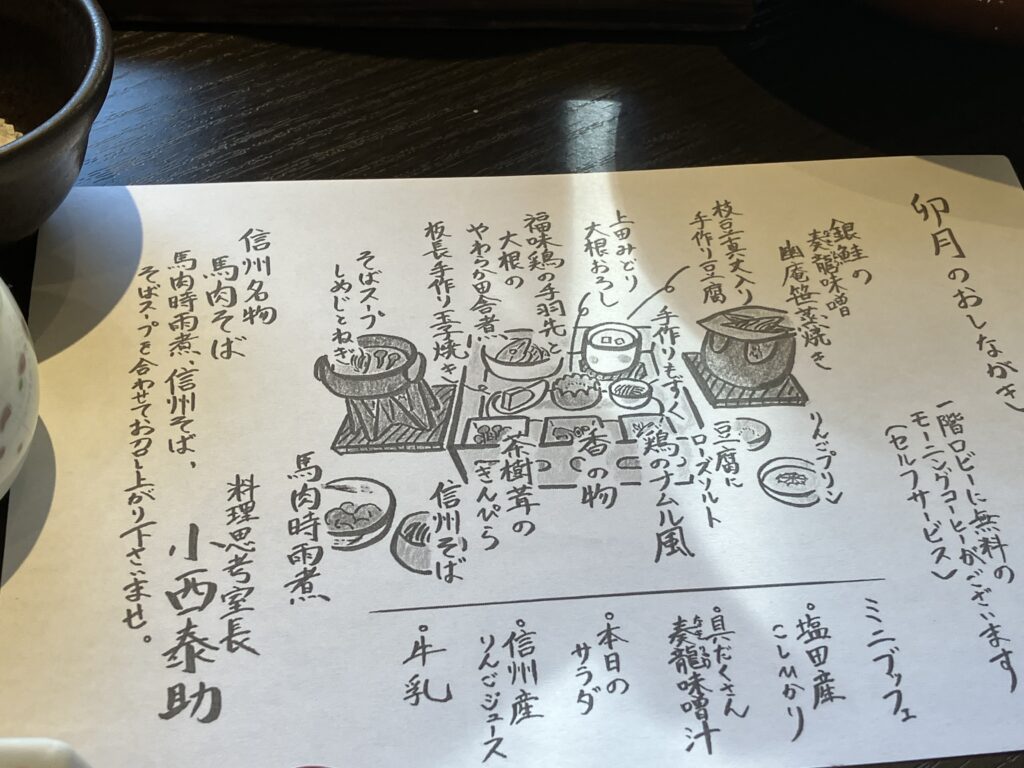 卯月のおしながき
一階ロビーに無料の
モーニングコーヒーがございます
（セルフサービス）
銀鮭の
奏龍味噌
幽庵笹蒸焼き
枝豆真丈入り
手作り豆腐
上田みどり
大根おろし
福味鶏の手羽先と
大根の
やわらか田舎煮
板長手作り玉子焼き
そばスープ
しめじとねぎ
りんごプリン
豆腐に
ローズソルト
手作りもずく
鶏のナムル風
香の物
茶樹茸の
きんぴら
信州そば
馬肉時雨煮
信州名物
馬肉そば
馬肉時雨煮、信州そば、
そばスープを合わせてお召し上がり下さいませ。
料理思考室長
小西泰助
ミニブッフェ
・塩田産
こしひかり
・具だくさん
奏龍味噌汁
・本日の
サラダ
・信州産
りんごジュース
・牛乳